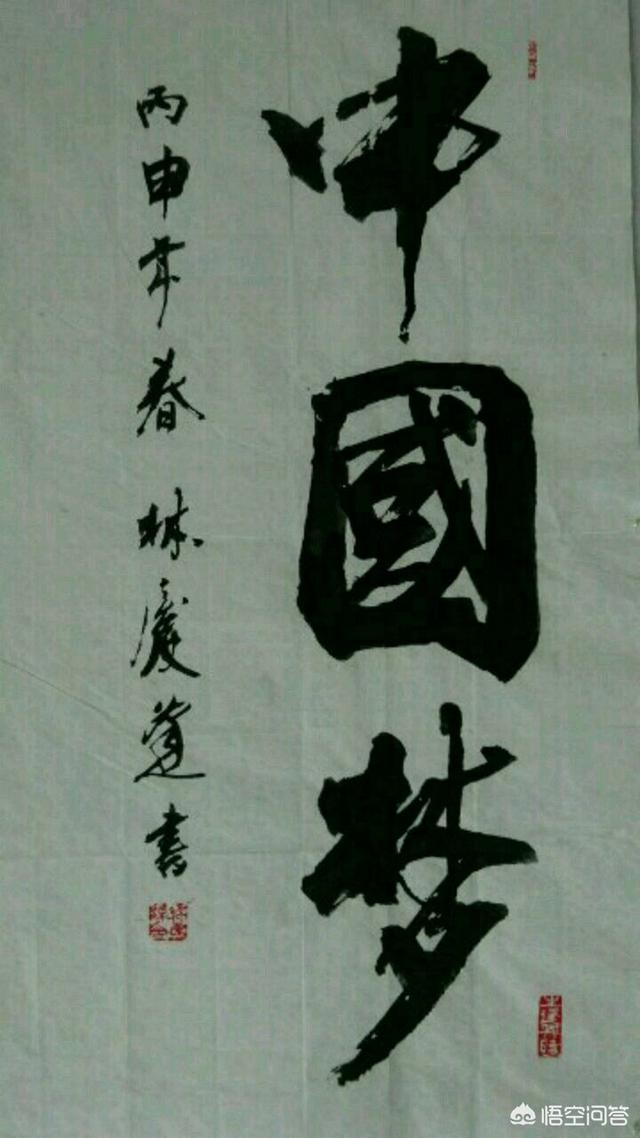 中國梦
丙申年春 林慶 書
悟空问答